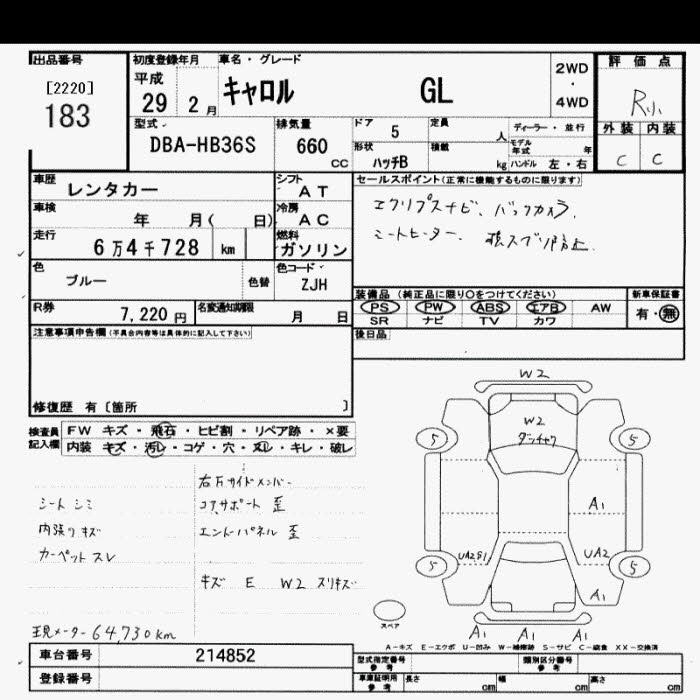 出品番号
[2220]
183
初度登録年月
平成
29 2月
車名・グレード
キャロル GL
2WD
・
4WD
評価点
R小
外装 内装
C C
型式
DBA-HB36S
排気量
660
CC
ドア
5
定員
人
形状
ハッチB
積載
kg
ディーラー・並行
モデル年式 年
ハンドル 左・右
車歴
レンタカー
シフト
AT
車検
年 月( 日)
冷房
AC
走行
6万4千728 km
燃料
ガソリン
色
ブルー
色替
色コード
ZJH
R券
7,220円
名変通知期限
月 日
セールスポイント(正常に機能するものに限ります)
エクリプスナビ、バックカメラ
シートヒーター、
装備品(純正品に限り○をつけてください)
PS PW ABS エアB AW
SR ナビ TV カワ
新車保証書
有・無
後日品
注意事項申告欄(不具合内容等は具体的に記入して下さい)
修復歴 有〔箇所 〕
検査員記入欄
FW キズ・飛石・ヒビ割・リペア跡・×要
内装 キズ・汚レ・コゲ・穴・スレ・キレ・破レ
シート シミ
内張りキズ
カーペットスレ
右Fサイドメンバー
コアサポート 歪
エンドパネル 歪
キズ E W2 スリキズ
現メーター 64,730km
W2
W2
5
5
A1
UA2S1
UA2
5
5
A1
スペア
A1 A1 A1
A-キズ E-エクボ U-凹み W-補修跡 S-サビ C-腐食 XX-交換済
車台番号
214852
登録番号
型式指定番号
参考
類別区分番号
参考
車庫証明用
参考
長さ cm
幅 cm
高さ cm